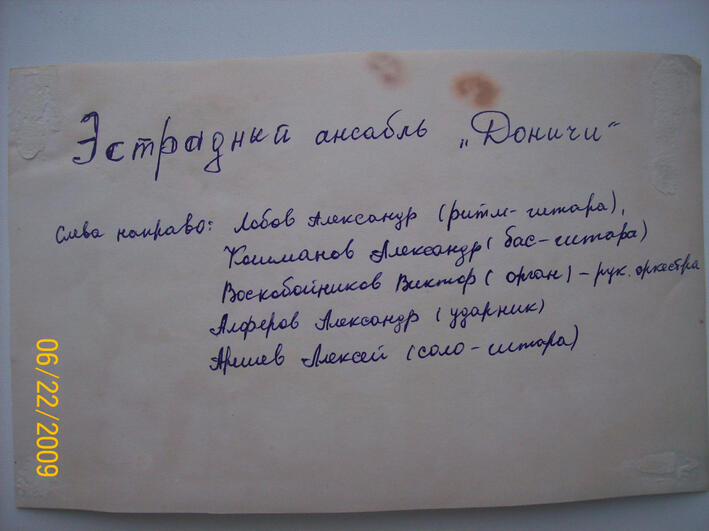 Эстрадный ансабль „Доничи“
Слева направо: Лобов Александр (ритм-гитара),
Кошманов Александр (бас-гитара)
Воскобойников Виктор (орган) – рук. оркестра
Алферов Александр (ударник)
Арешев Алексей (соло-гитара)
06/22/2009